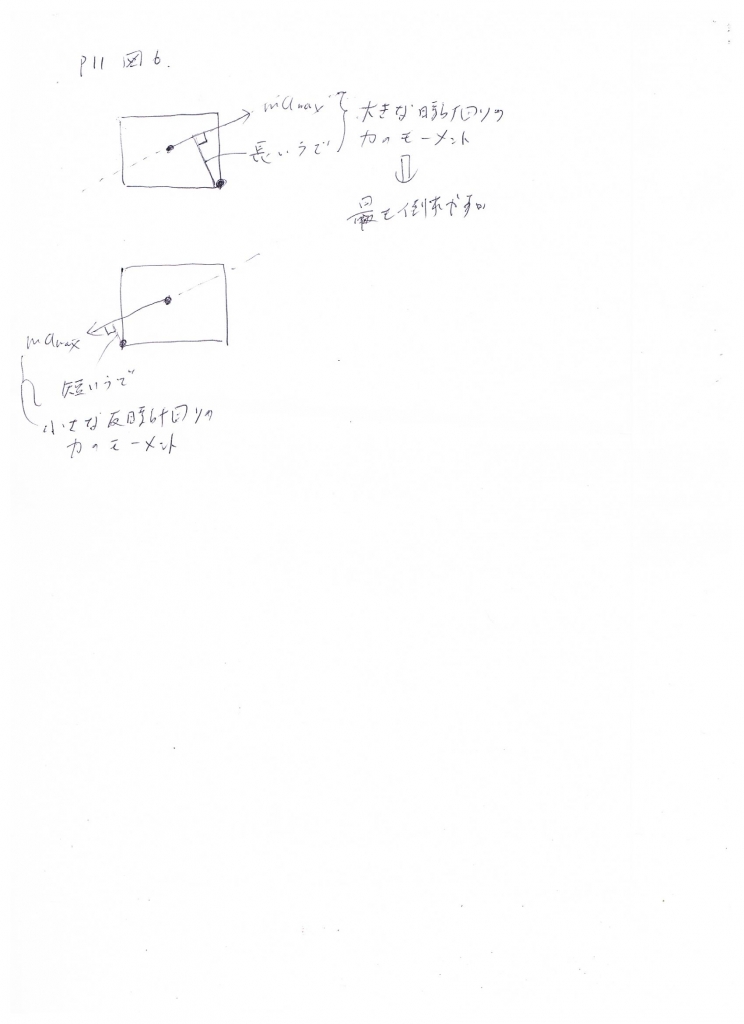 P11 図6.
mamax
大きな時計回りの
力のモーメント
長いうで
⇓
最も倒れやすい
mamax
短いうで
小さな反時計回りの
力のモーメント